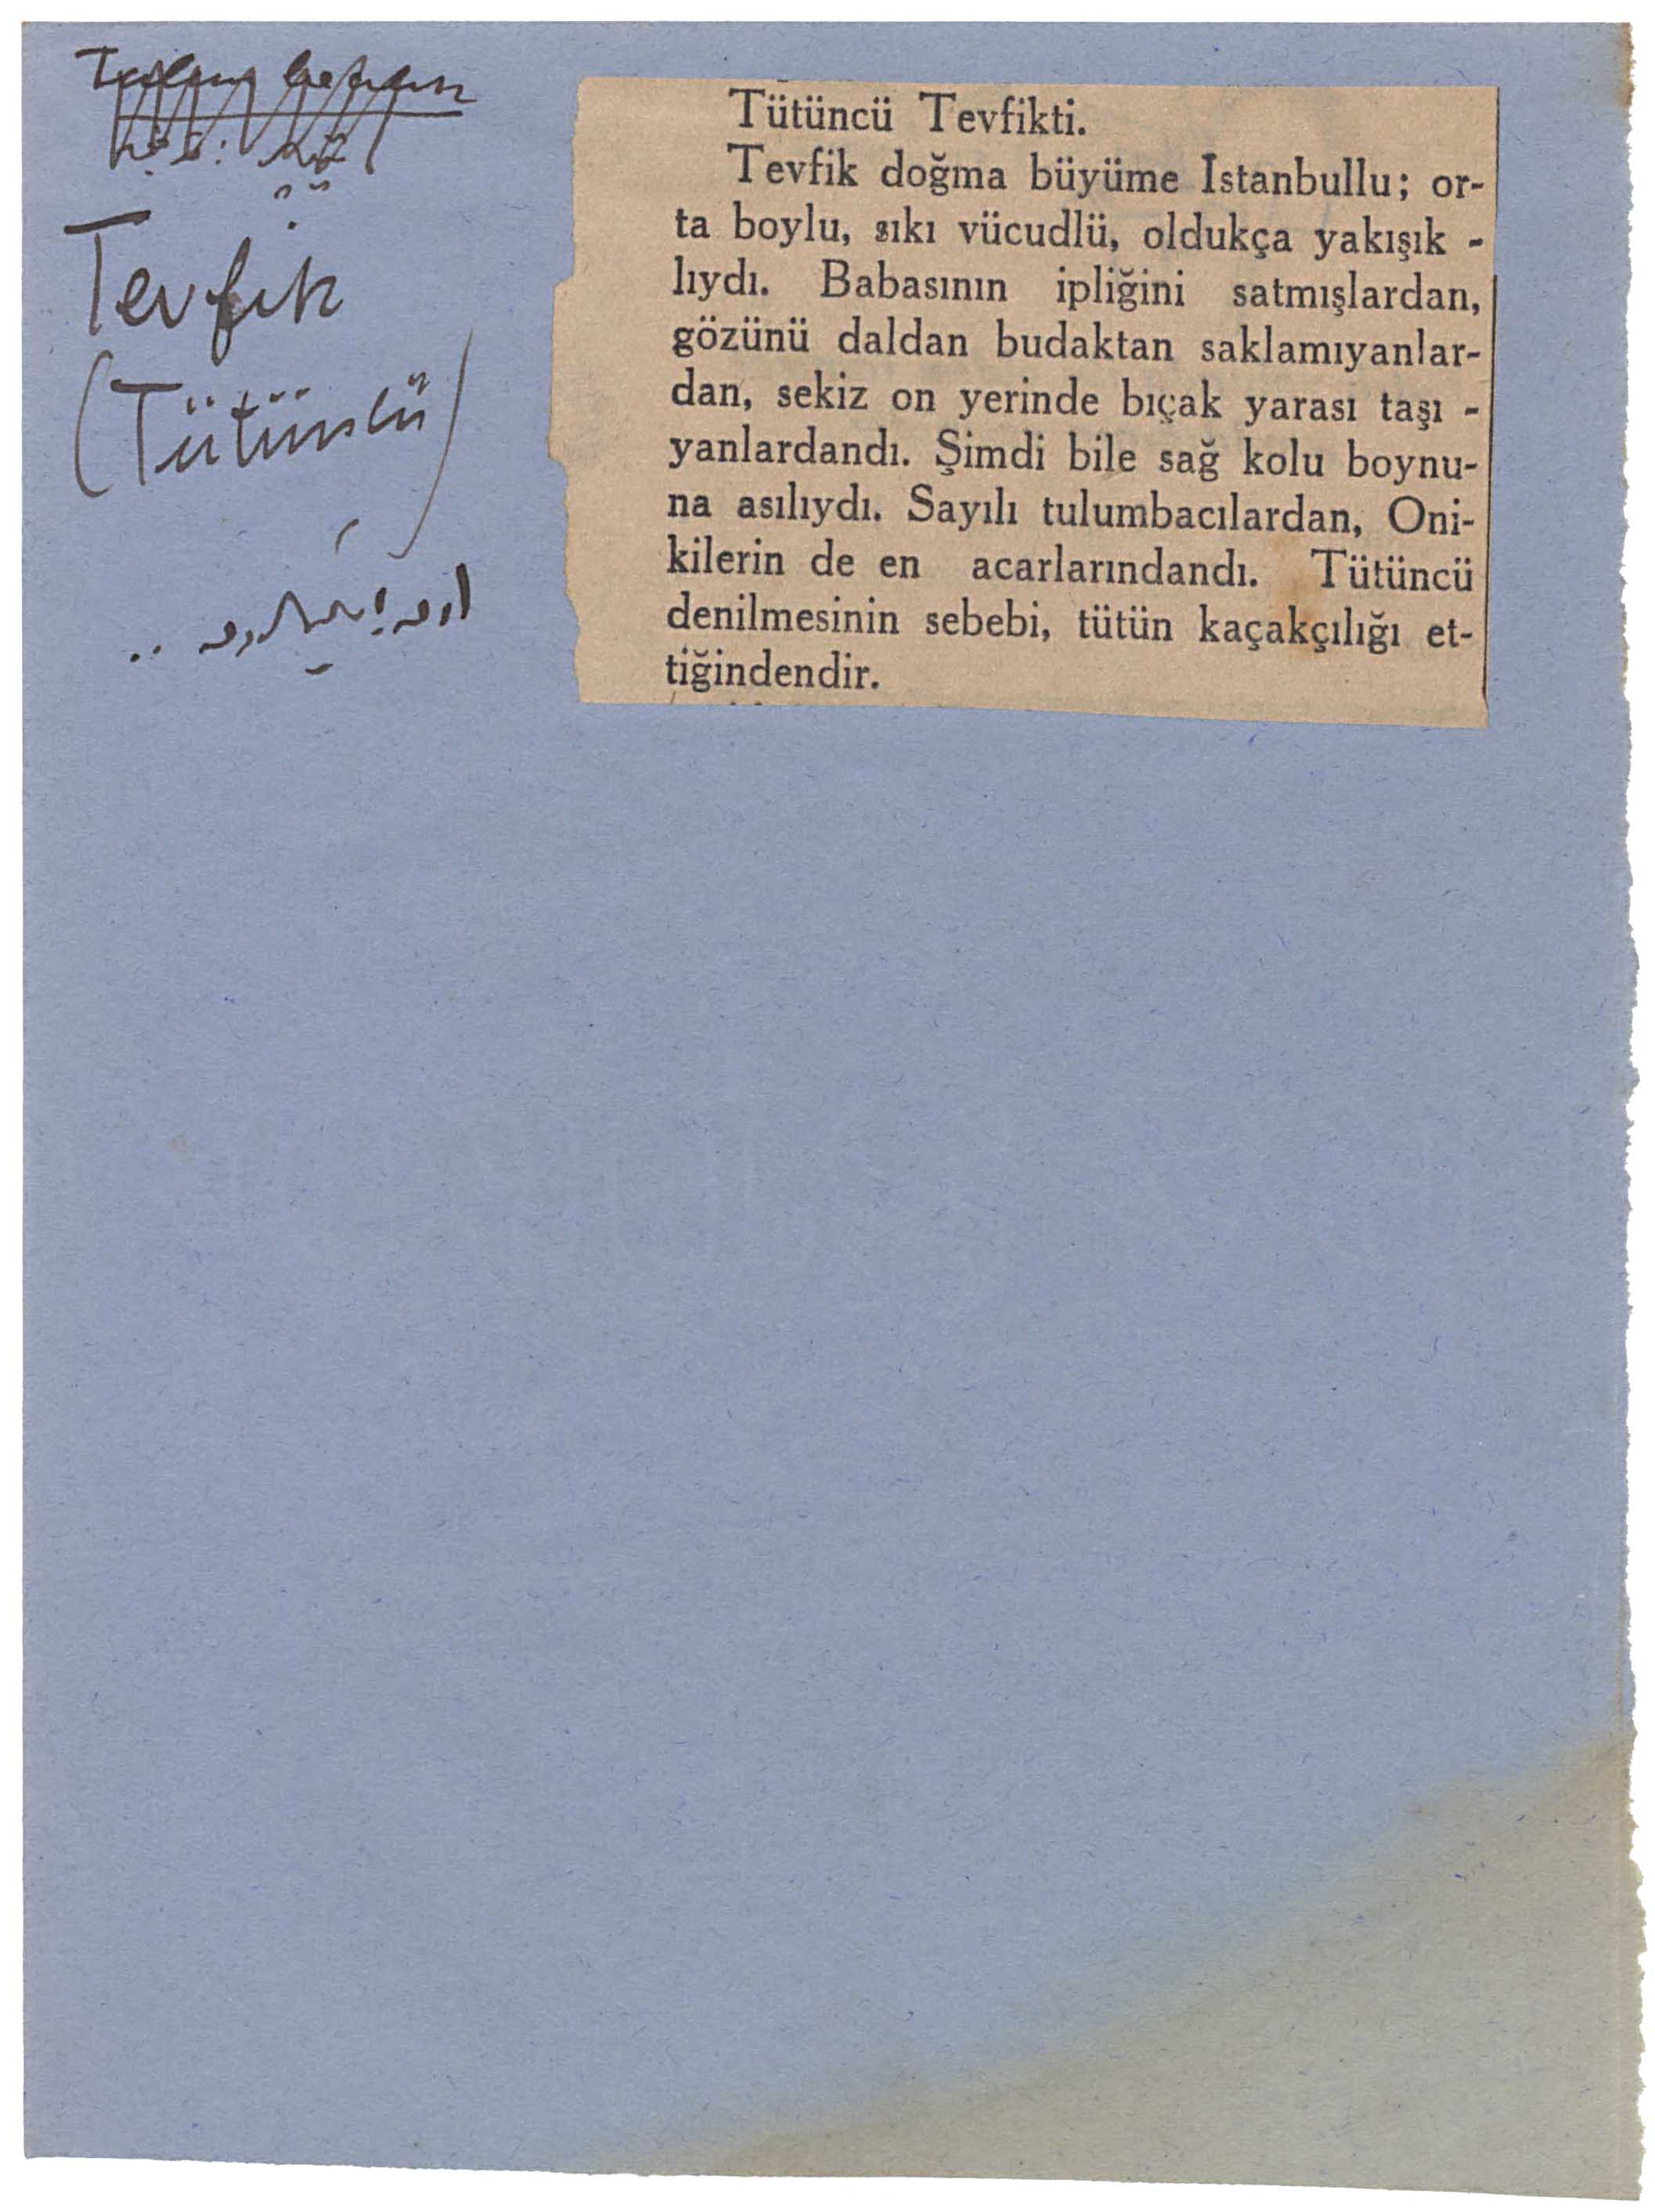 Tevfik
(Tütüncü)
Tütüncü Tevfikti.
Tevfik doğma büyüme İstanbullu; or-
ta boylu, sıkı vücudlü, oldukça yakışık -
lıydı. Babasının ipliğini satmışlardan,
gözünü daldan budaktan saklamıyanlar-
dan, sekiz on yerinde bıçak yarası taşı -
yanlardandı. Şimdi bile sağ kolu boynu-
na asılıydı. Sayılı tulumbacılardan, Oni-
kilerin de en acarlarındandı. Tütüncü
denilmesinin sebebi, tütün kaçakçılığı et-
tiğindendir.